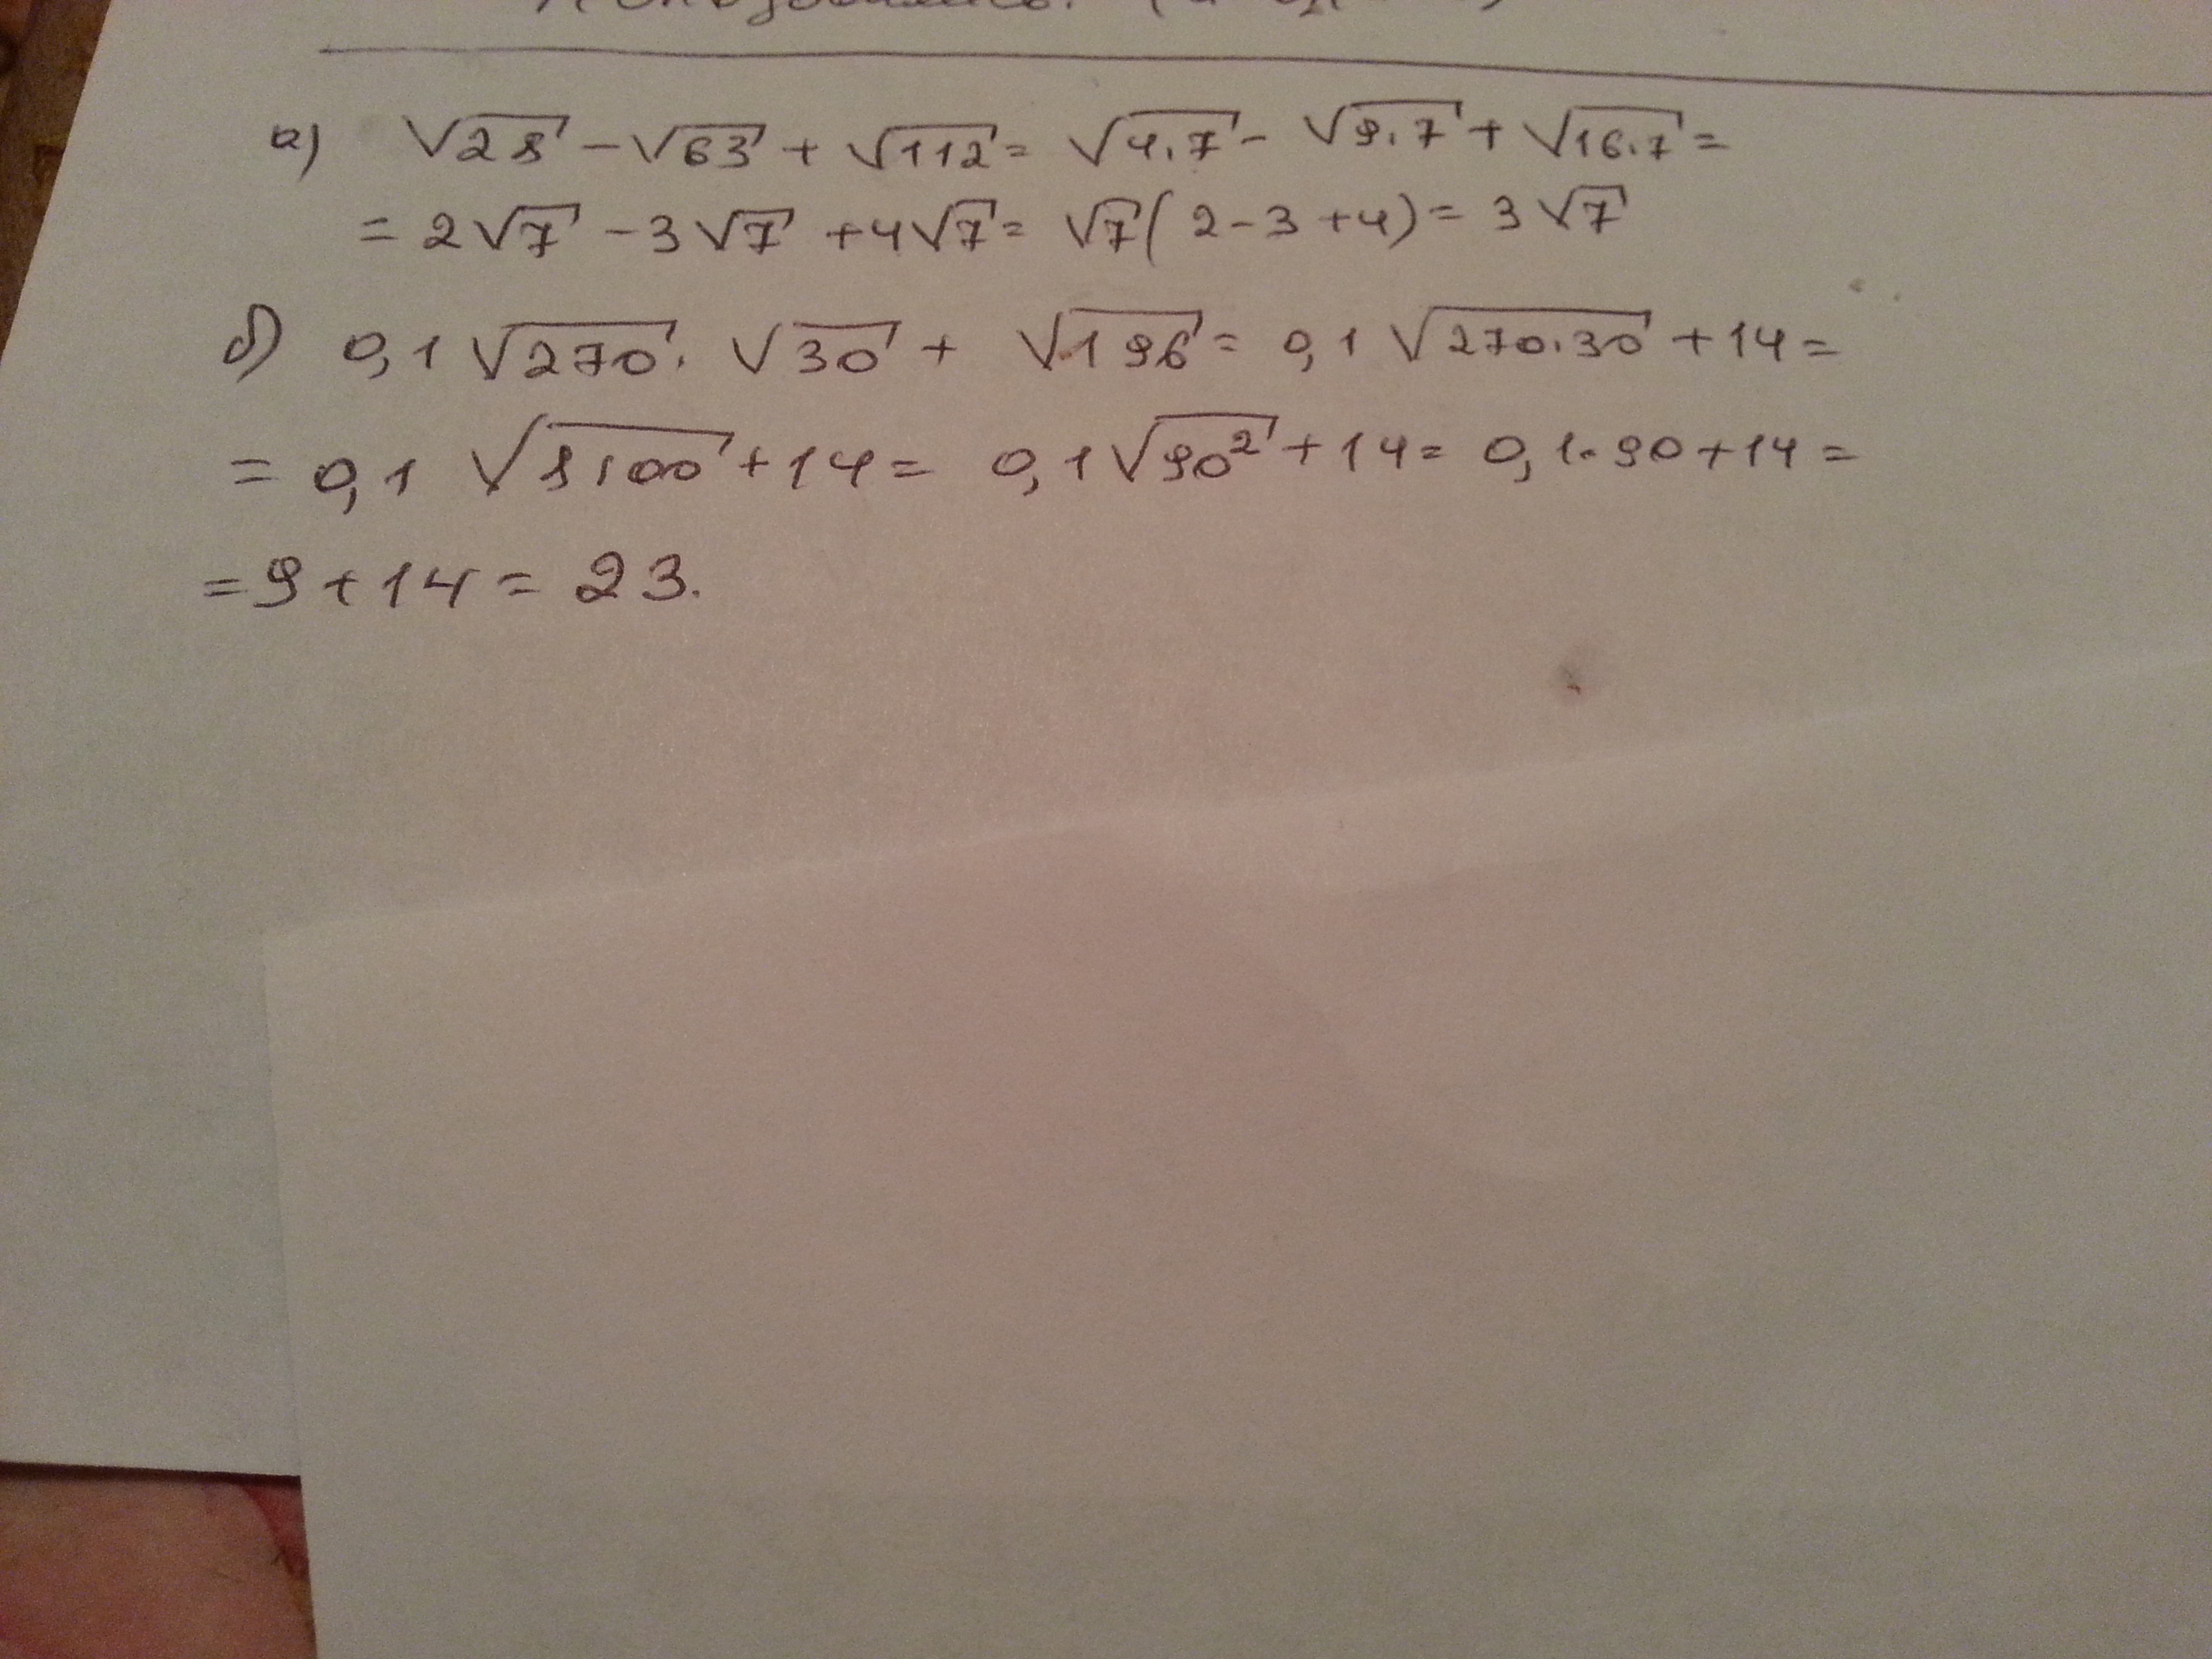 а) √28 - √63 + √112 = √4·7 - √9·7 + √16·7 =
= 2√7 - 3√7 + 4√7 = √7(2-3+4) = 3√7
б) 0,1√270 · √30 + √196 = 0,1√270·30 + 14 =
= 0,1 √8100 + 14 = 0,1√90² + 14 = 0,1·90 + 14 =
= 9 + 14 = 23.